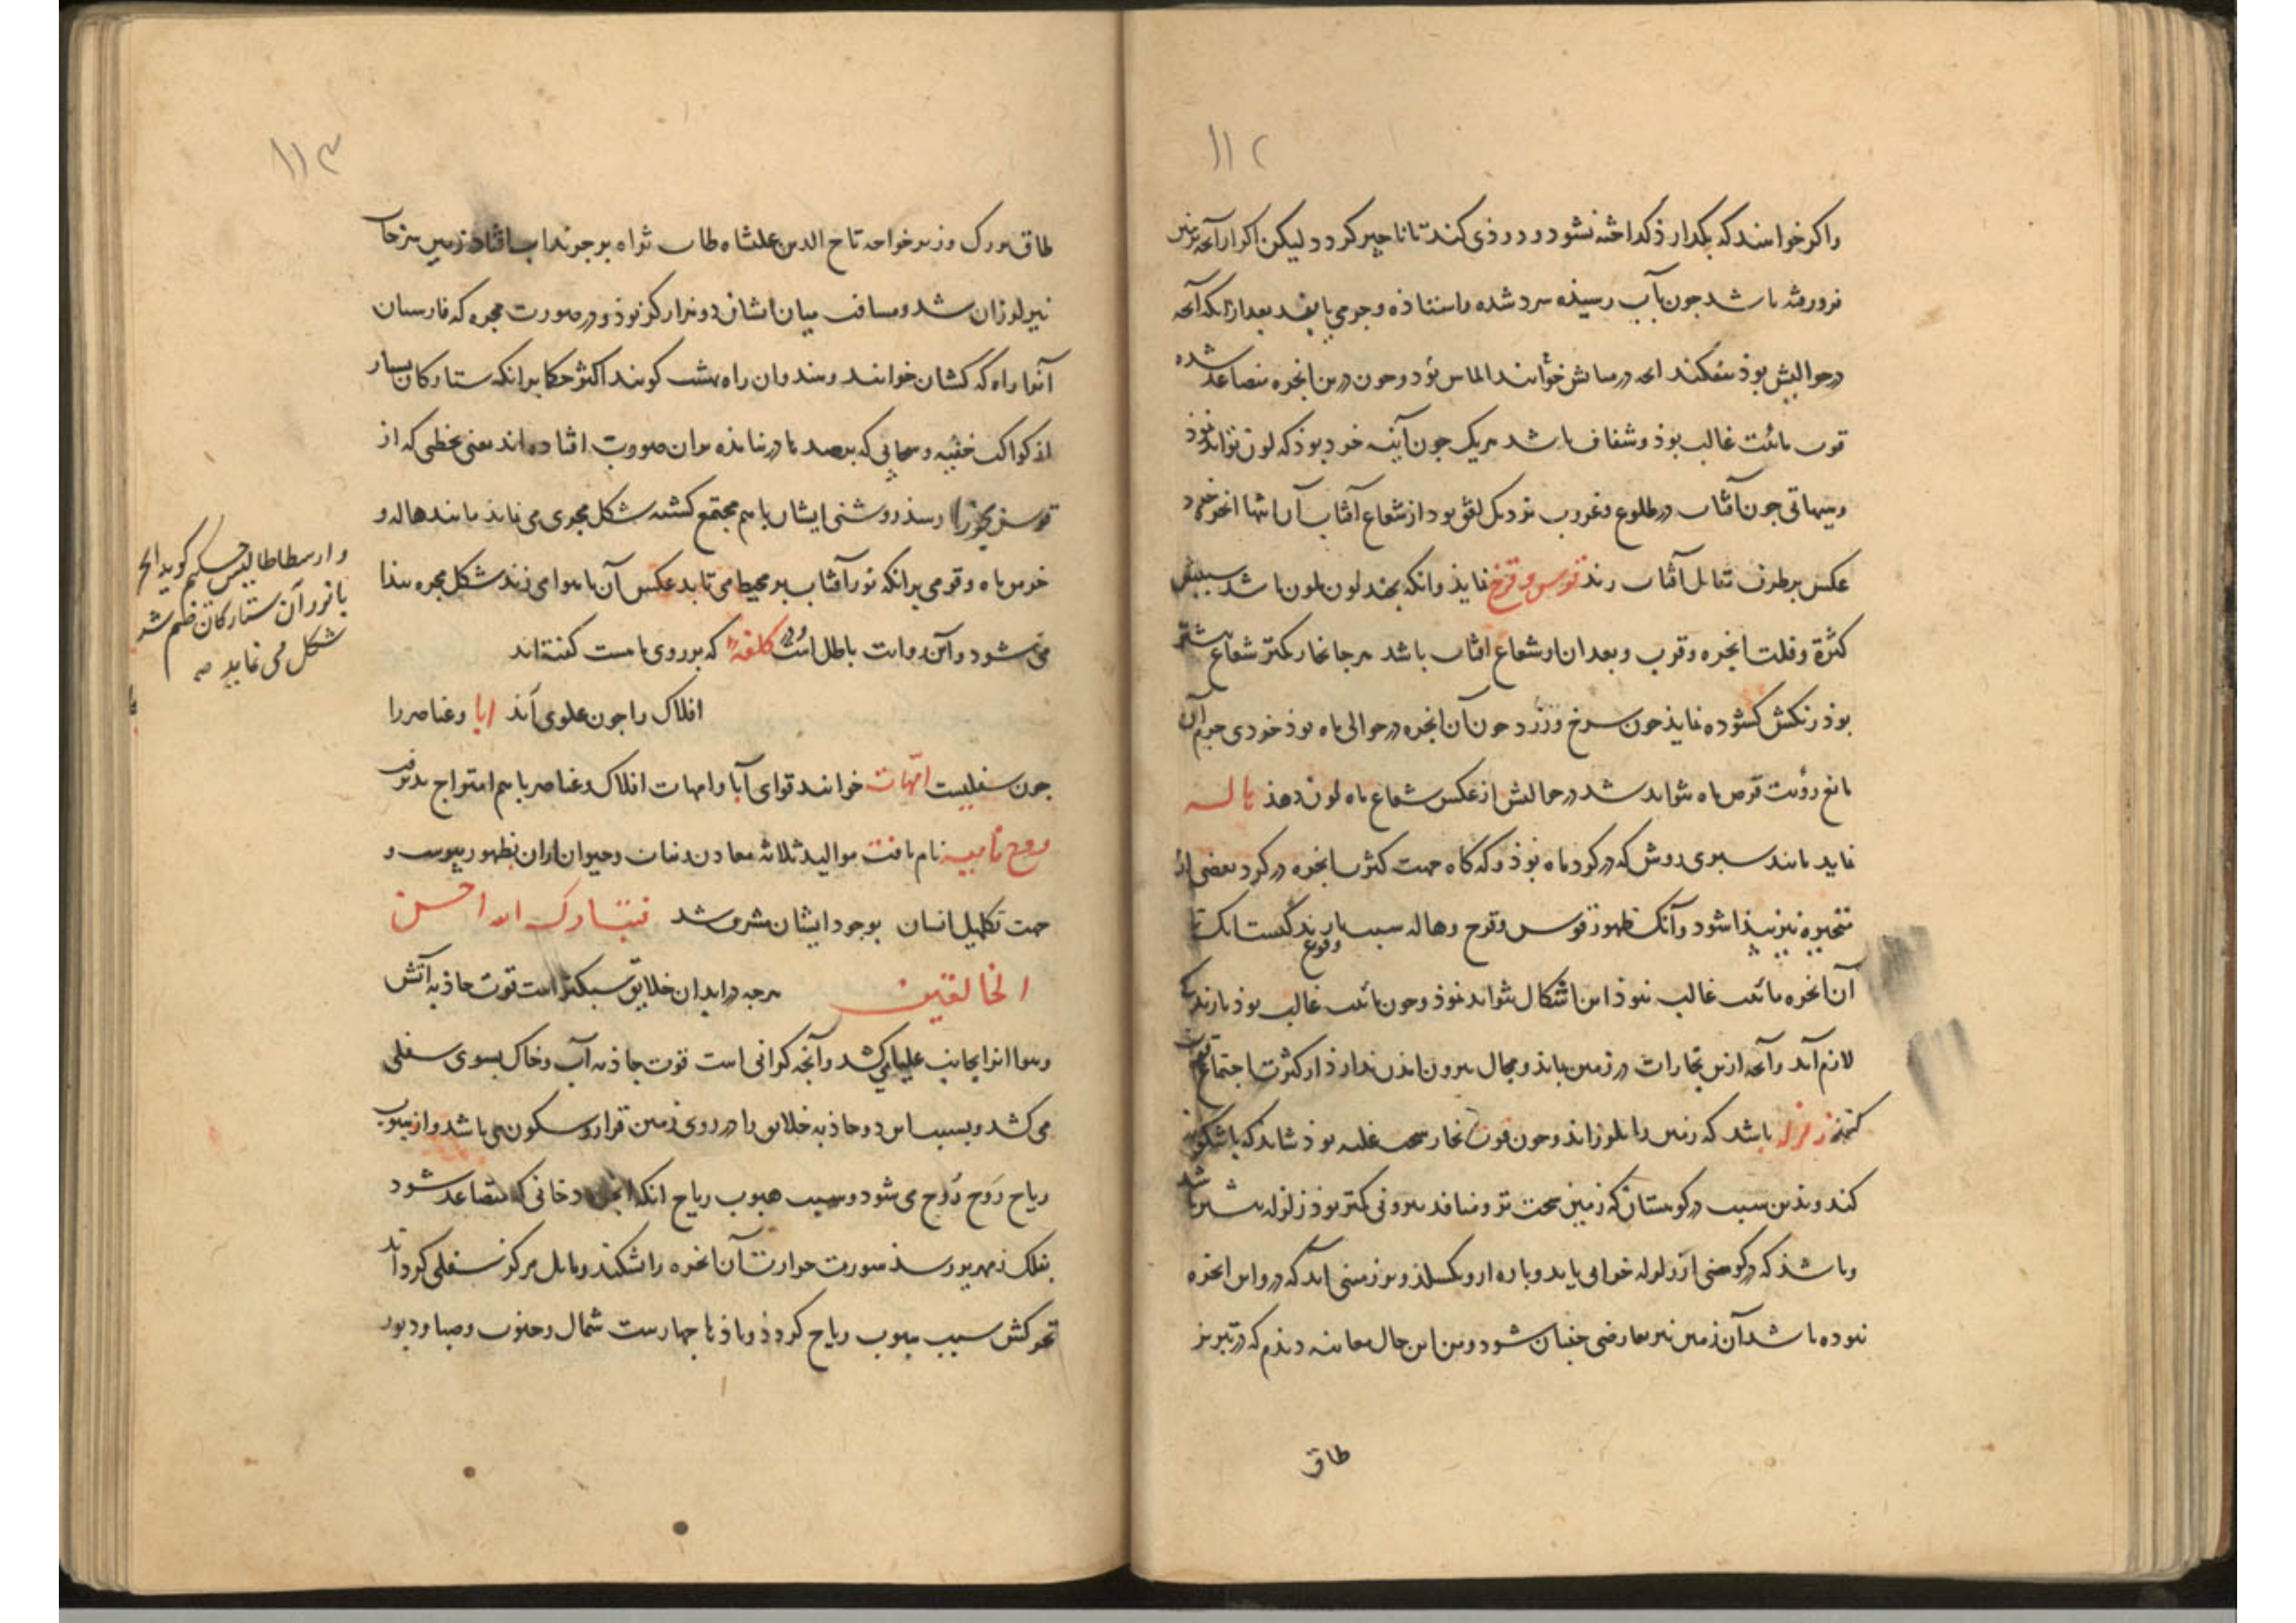 ۱۱۲
واکر خواهند که بکدازد کداخته نشود و دوذی کند تا ناچیز کردد لیکن اکر از آنجه بر زمین
فرو رفته باشد جون بآب رسیذه سرد شده و استاذه و جرمی یابد بعد از انکه آنجه
در حوالیش بوذ بشکند انجه در میانش خوانند الماس بود و جون درین ابخره متصاعد شده
قوت مائیت غالب بوذ و شفاف باشد هریک جون آینه خرد بوذ که لون تواند نموذ
جون آفتاب در طلوع و غروب نزدیک افق بود از شعاع آفتاب آن ابخره
عکس بر طرف تقابل آفتاب زند قوس و قزح نماید وانکه بجند لون ملون باشد سببش
کثرة و قلت ابخره و قرب و بعد آن از شعاع افتاب باشد هرجا بخار کمتر شعاع بیشتر
بوذ رنکش کشوده نماید جون سرخ و زرد جون آن ابخره در حوالی ماه بوذ خودی جرم آن
مانع رؤیت قرص ماه نتواند شد در حوالیش از عکس شعاع ماه لون دهذ هاله
نماید مانند سپری روشن که در کرد ماه بوذ و که کاه جهت کثرت ابخره در کرد بعضی از
متحیره نیز پیذا شود وآنک ظهور قوس و قزح و هاله سبب وقوع بارندکیست انک تا
آن ابخره مائیت غالب نبوذ این اشکال نتواند نموذ و جون مائیت غالب بوذ بارندکی
لازم آید وآنجه ازین بخارات در زمین بماند و مجال بیرون امدن ندارذ از کثرت اجتماع قوت
کیرد زلزله باشد که زمین را بلرزاند و جون قوت بخار سخت غلبه بوذ شاید که باشکونه
کند و بذین سبب در کوهستان که زمین سخت تر و منافذ بیرونی کمتر بوذ زلزله بیشتر باشد
و باشذ که در کوهی از زلزله خرابی یابد و پاره ازو بکسلذ و بر زمینی آید که در و این ابخره
نبوده باشد آن زمین نیز بعارضی جنبان شود و من این حال معاینه دیذم که در تبریز
طاق
۱۱۳
طاق بزرک وزیر خواجه تاج الدین علیشاه طاب ثراه بر جرنداب افتاد زمین سرخاب
نیز لرزان شد و مسافت میان ایشان دو هزار کز بوذ و در صورت مجره که فارسیان
آنرا راه که کشان خوانند و هندوان راه بهشت کویند اکثر حکما برانکه ستارکان بسیار
از کواکب خفیه و سحابی که برصد نیامذه بران صورت افتاده اند یعنی بخطی که از
قوس بجوزا رسذ روشنی ایشان باهم مجتمع کشته شکل مجری می نماید مانند هاله و
خرمن ماه و قومی برانکه نور آفتاب بر محیط می تابد عکس آن باهوا می زند شکل مجره پیذا
می شود و آن روایت باطل است و در کلفه که بر روی ماهست کفته اند
افلاک را جون علوی اند ابا و عناصر را
جون سفلیست امهات خوانند قوای آبا وامهات افلاک و عناصر باهم امتزاج بذیرفت
روح نامیه نام یافت موالید ثلاثه معادن و نبات و حیوان ازان بظهور پیوست و
جهت تکمیل انسان بوجود ایشان مشرف شد فتبارک الله احسن
الخالقین هرجه در ابدان خلایق سبکتر است قوت جاذبه آتش
وهوا انرا بجانب علیا می کشد و آنجه کرانی است قوت جاذبه آب و خاک بسوی سفلی
می کشد و بسبب این دو جاذبه خلایق را در روی زمین قرار و سکون می باشد و از هبوب
ریاح رَوح رُوح می شود و سبب هبوب ریاح انکه ابخره دخانی که متصاعد شود
بفلک زمهریر رسذ سورت حرارت آن ابخره را بشکند و مایل مرکز سفلی کرداند
تحرکش سبب هبوب ریاح کردذ و باذها جهارست شمال و جنوب و صبا و دبور
و ارسطاطالیس حکیم کوید ابخره
با نور آن ستارکان ضم شد
شکل می نماید صه